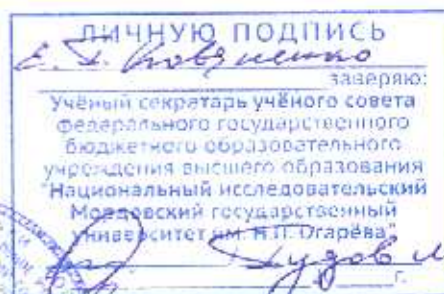 ЛИЧНУЮ ПОДПИСЬ
Е. Д.
заверяю:
Учёный секретарь учёного совета
федерального государственного
бюджетного образовательного
учреждения высшего образования
"Национальный исследовательский
Мордовский государственный
университет им. Н.П. Огарёва"
г.